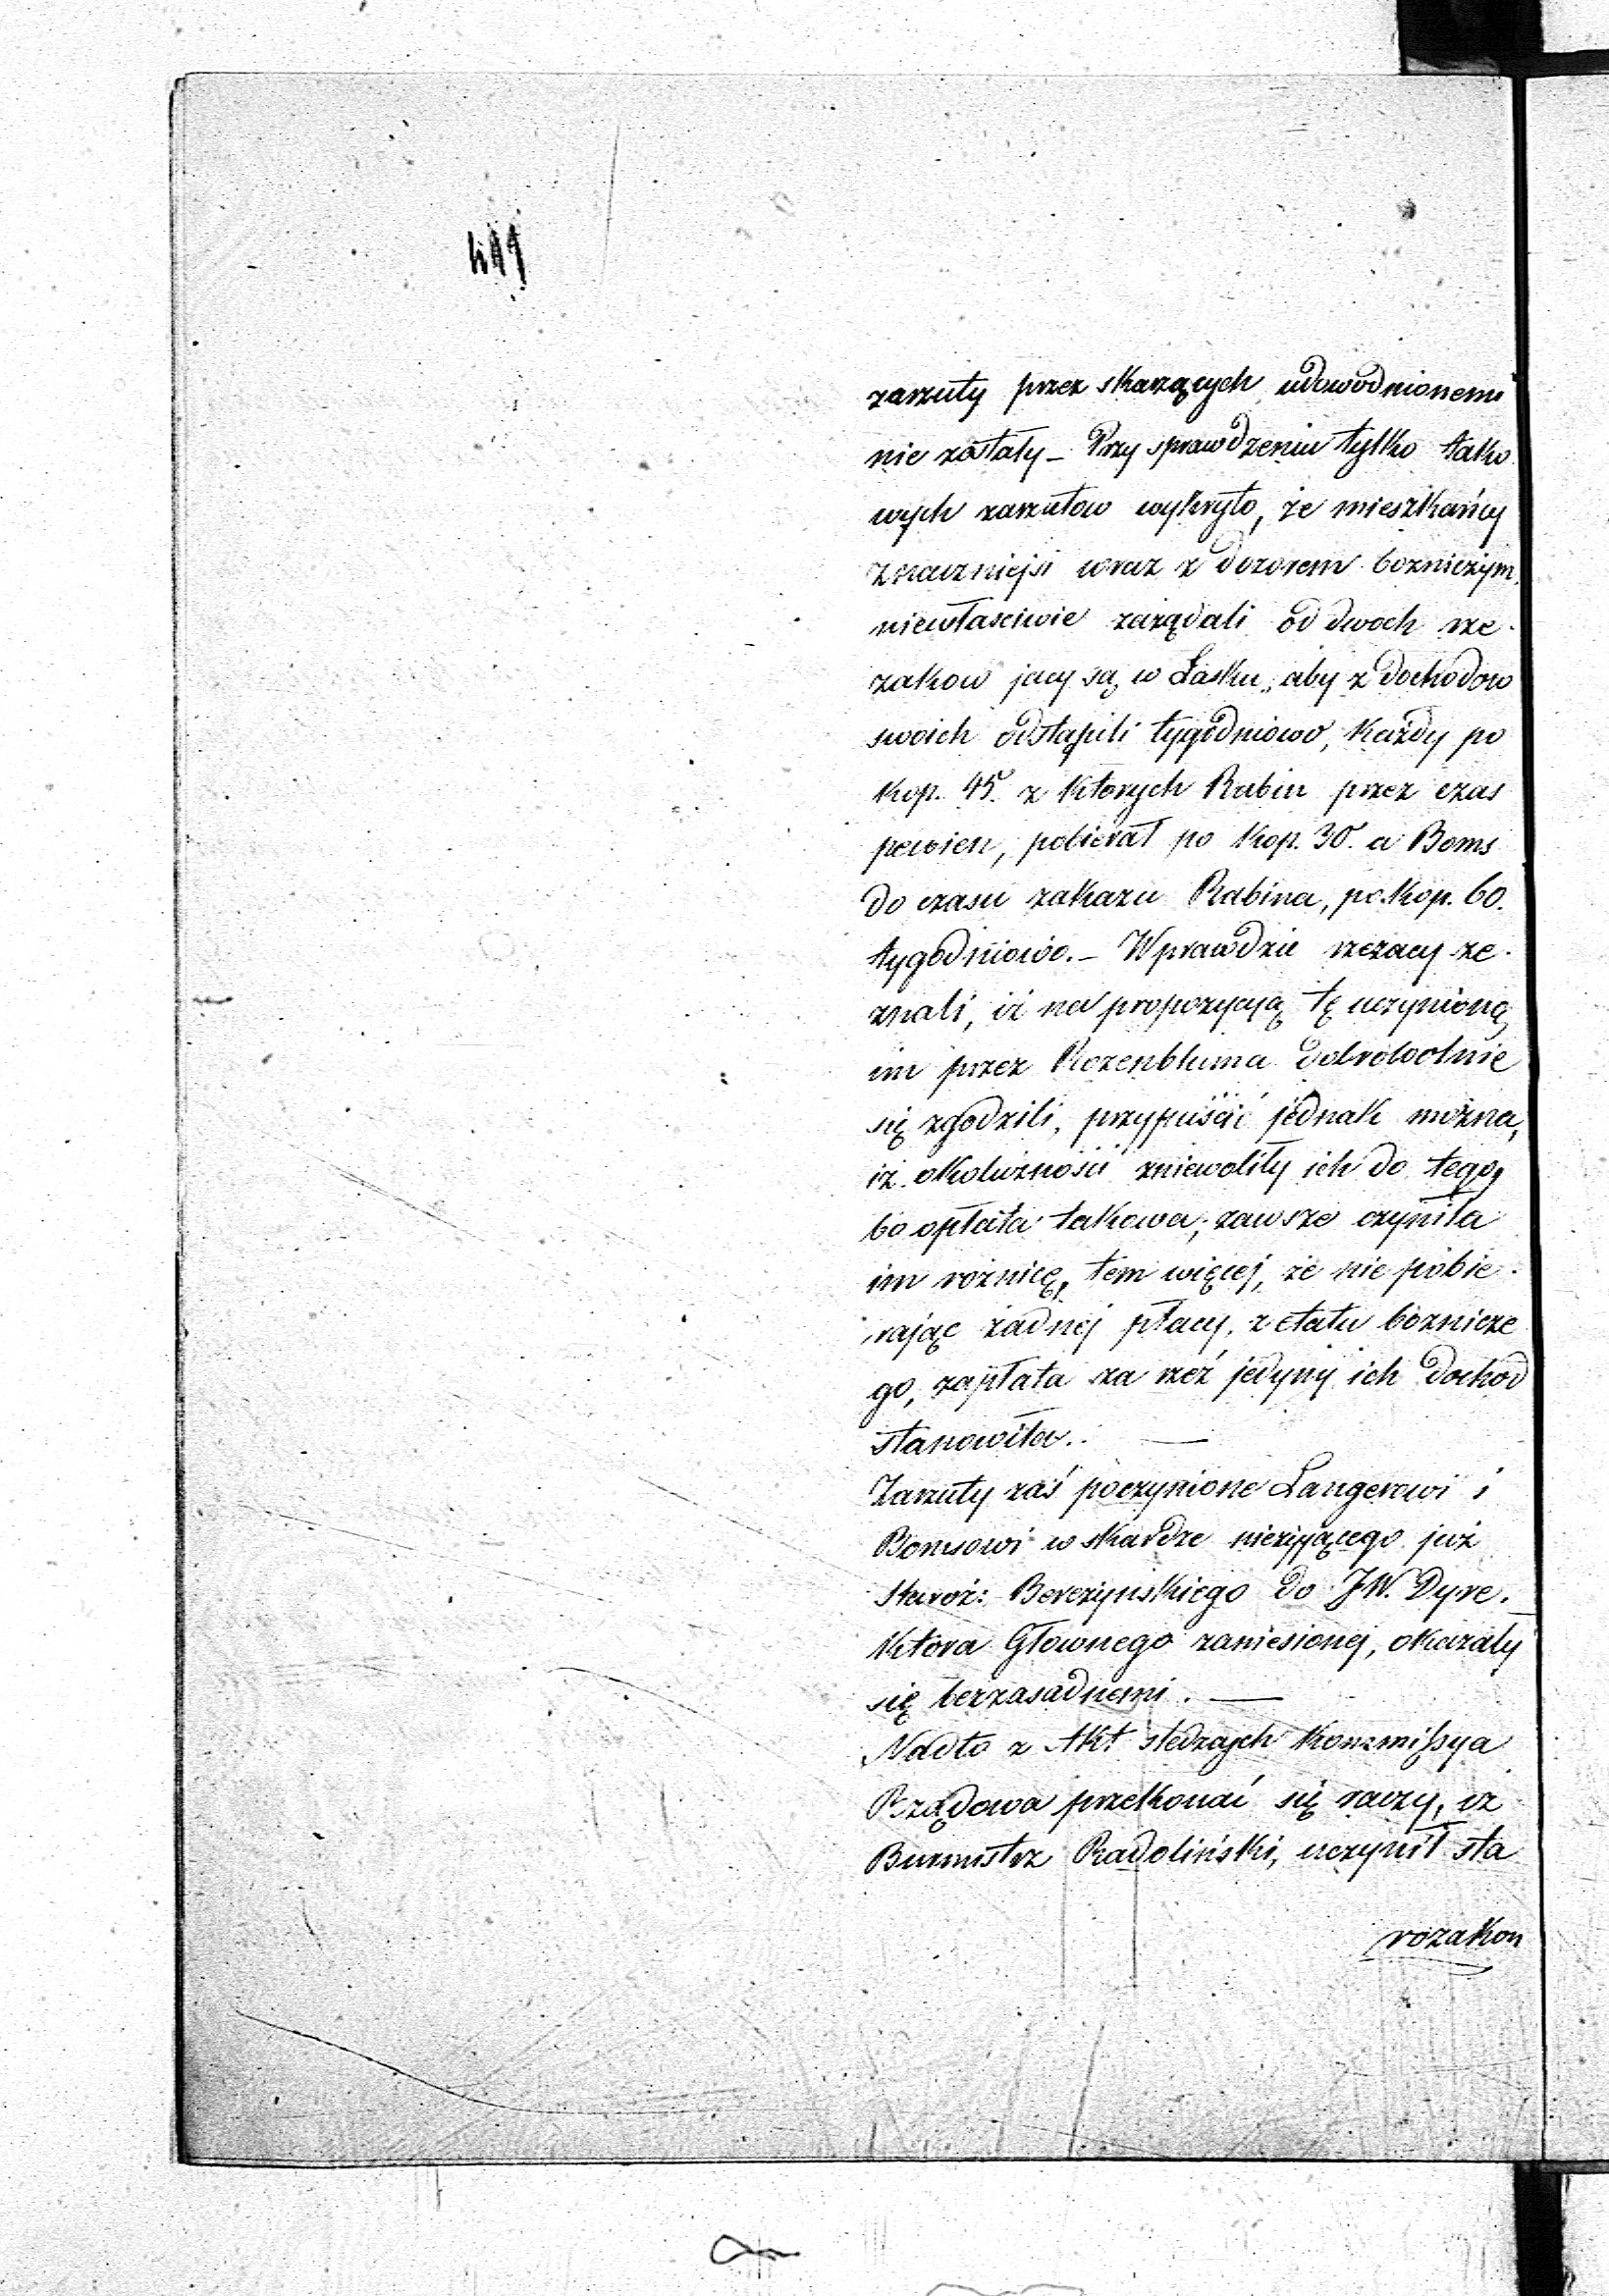 zarzuty przez skarzących udowodnionemi
nie zostały - Przy sprawdzeniu tylko tako
wych zarzutow wykryto, że mieszkańcy
znaczniejsi wraz z dozorem bozniczym,
niewłasciwie zażądali od dwoch rze-
zakow jacy są w Łasku, aby z dochodow
swoich odstąpili tygodniowo, każdy po
kop. 45. z ktorych Rabin przez czas
pewien, pobierał po kop. 30. a Boms
do czasu zakazu Rabina, po kop. 60.
tygodniowo. - Wprawdzie rzezacy ze-
znali, iż na propozycyą tę uczynioną
im przez Rozenbluma dobrowolnie
się zgodzili, przypuścić jednak można,
iż okoliczności zniewoliły ich do tego,
bo opłata takowa, zawsze czyniła
im rożnicę, tem więcej, że nie pobie-
rając żadnej płacy, z etatu boznicze
go, zapłata za rzeź jedyny ich dochod
stanowiła. —
Zarzuty zaś poczynione Langerowi i
Bomsowi w skardze nieżyjącego już
Staroz: Berczyńskiego do JW. Dyre-
ktora Głownego zaniesionej, okazały
się bezzasadnemi. —
Nadto z Akt sledzczych Kommissya
Rządowa przekonać się raczy, iz
Burmistrz Radoliński, uczynił sta
rozakon